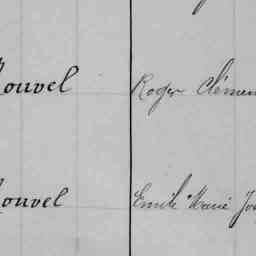 Rouvel Roger Clémen
Rouvel Emile Marie Jos